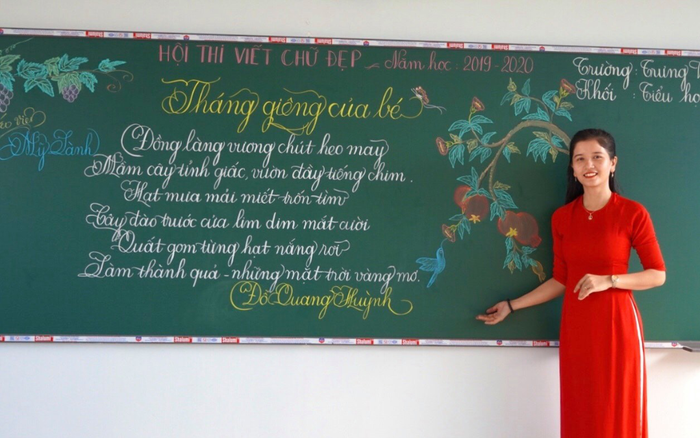 HỘI THI VIẾT CHỮ ĐẸP Năm học: 2019-2020
Trường: Trưng
Khối: Tiểu họ
Mỹ Lành
Tháng giêng của bé
Đồng làng vương chút heo may
Mầm cây tỉnh giấc, vườn đầy tiếng chim
Hạt mưa mải miết trốn tìm
Cây đào trước cửa lim dim mắt cười
Quất gom từng hạt nắng rơi
Làm thành quả - những mặt trời vàng mơ.
Đỗ Quang Huỳnh